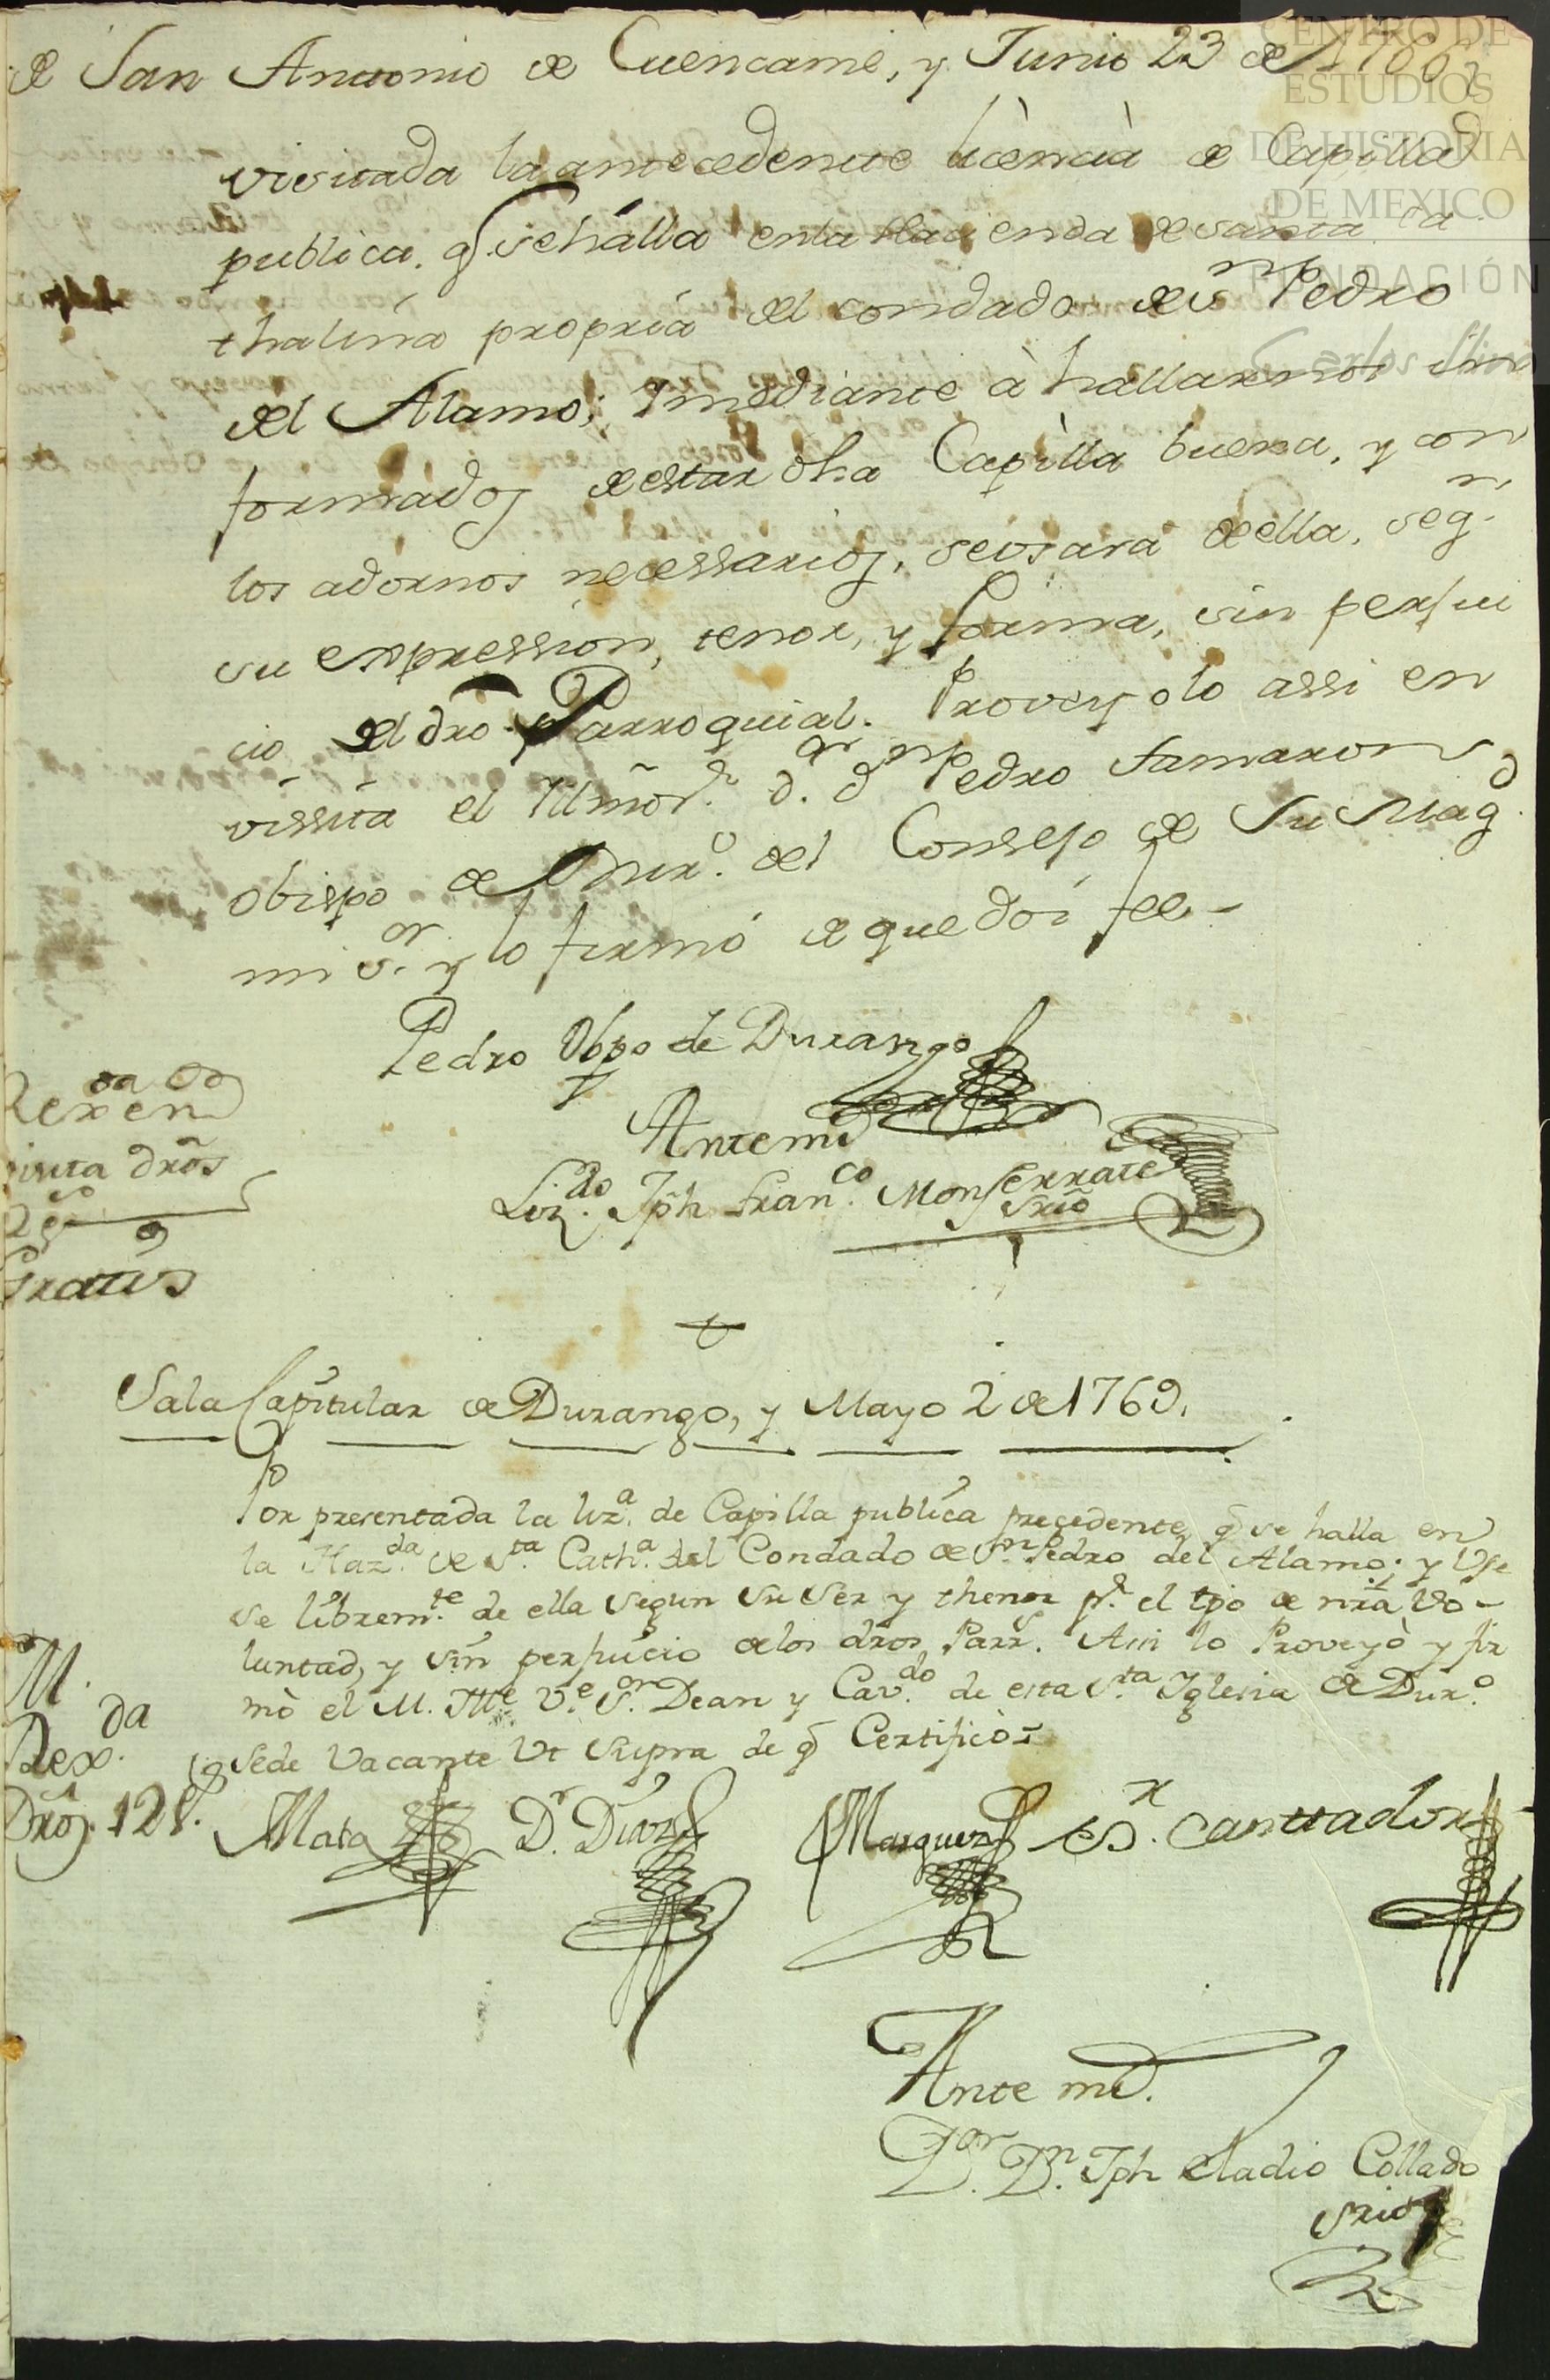 de San Antonio de Cuencame, y Junio 23 de
visitada la antecedente licencia de Capilla
publica. q̃ se hálla en la Hacienda de santa Ca
thalina propria del condado de Sn Pedro
del Alamo; Y mediante à hallarnos Ynn
formados de estar dha Capilla buena, y con
los adornos necessarios, se usará de ella, segn.
su expression, tenor, y forma, sin perjui
cio del dro. Parroquial. Proveyolo assi en
vissita el Illmõ Sr. Dor. dn Pedro Tamaron
obispo de Duro. del Consejo de Su Magd.
mi Sor. y lo firmó de que doi fee-
Pedro Obpo de Durango
Ante mi
Lizdo. Jph Franco. Monserrate
Srio
da
drõs
Gratis
Sala Capitular de Durango, y Mayo 2 de 1769.
Por presentada la liza. de Capilla publica precedente q̃ se halla en
la Hazda. de Sta. Catha. del Condado de Sn. Pedro del Alamo; y Use
se libremte. de ella segun su ser y thenor pr. el tpo de nrã Vo-
luntad, y sin perjuicio de los dros Parrs. Assi lo Proveyò y fir
mò el M. Ille Ve. Sor. Dean y Cavdo. de esta Sta Yglesia de Duro.
Sede Vacante Ut Supra de q̃ Certificò-
M.
da
Drõs. 12 rs.
Mata Dr. Diaz Marquez Sr. Canttador
Ante mi.
Dor. Dn. Jph Eladio Collado
Srio
CENTRO DE
ESTUDIOS
DE HISTORIA
DE MEXICO
FUNDACIÓN
Carlos Slim